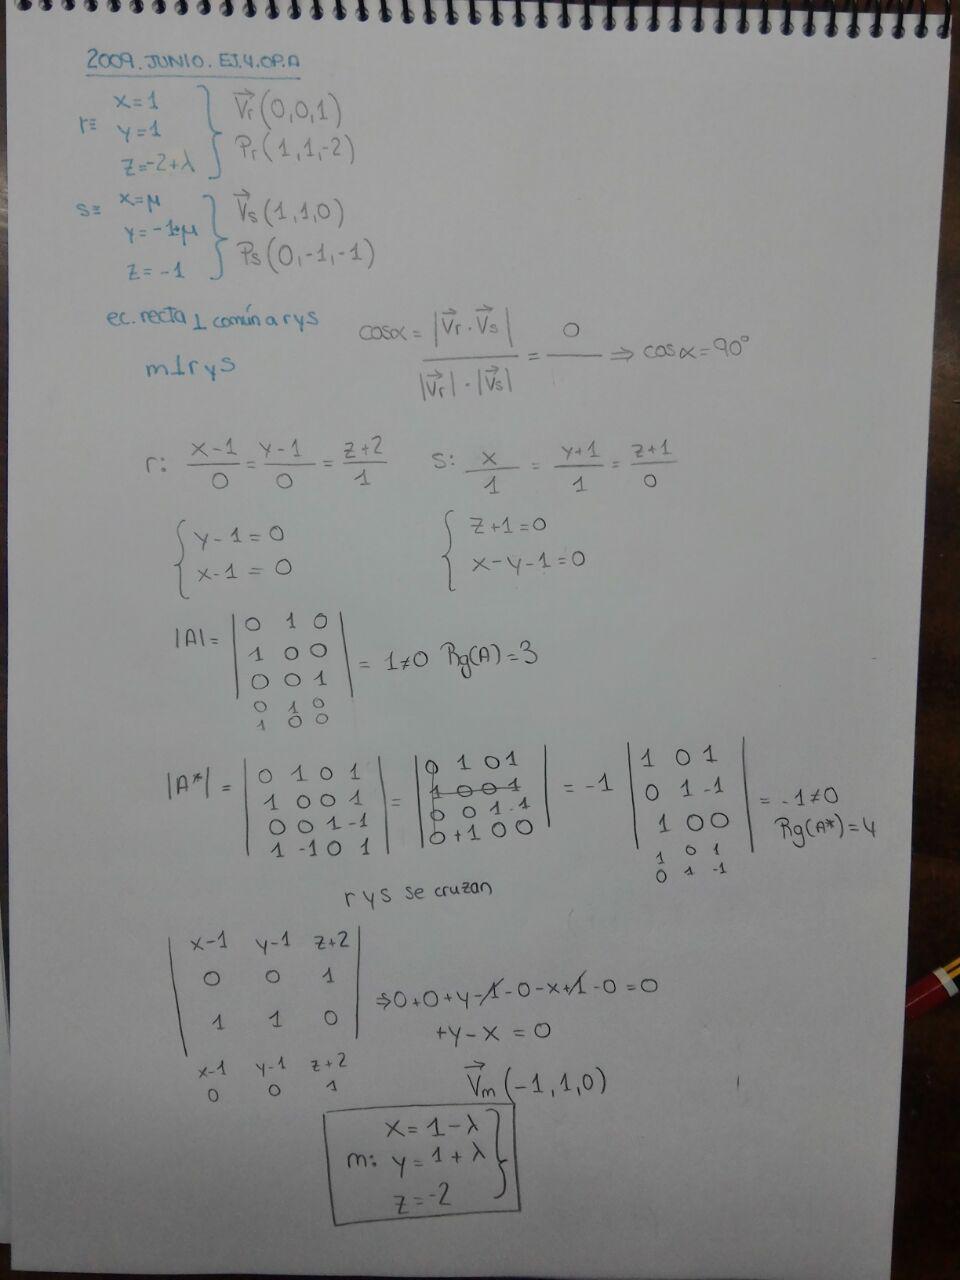 2009. JUNIO. EJ.4.OP.A
r≡ x=1 y=1 z=-2+λ } V⃗r(0,0,1) Pr(1,1,-2)
s≡ x=μ y=-1+μ z=-1 } V⃗s(1,1,0) Ps(0,-1,-1)
ec. recta ⊥ común a r y s
m⊥r y s
cosα = |V⃗r · V⃗s| / |V⃗r| · |V⃗s| = 0/ ⇒ cosα = 90°
r: x-1/0 = y-1/0 = z+2/1 s: x/1 = y+1/1 = z+1/0
{ y-1=0 { z+1=0
{ x-1=0 { x-y-1=0
|A| = | 0 1 0 |
| 1 0 0 | = 1≠0 Rg(A)=3
| 0 0 1 |
0 1 0
1 0 0
|A*| = | 0 1 0 1 | = | 0 1 0 1 | = -1 | 1 0 1 |
| 1 0 0 1 | | 1 0 0 1 | | 0 1 -1 | = -1≠0
| 0 0 1 -1 | | 0 0 1 -1 | | 1 0 0 | Rg(A*)=4
| 1 -1 0 1 | | 0 +1 0 0 |
1 0 1
0 1 -1
r y s se cruzan
| x-1 y-1 z+2 |
| 0 0 1 | ⇒ 0+0+y-1-0-x+1-0=0
| 1 1 0 | +y-x=0
x-1 y-1 z+2
0 0 1
V⃗m(-1,1,0)
x=1-λ
m: y=1+λ }
z=-2